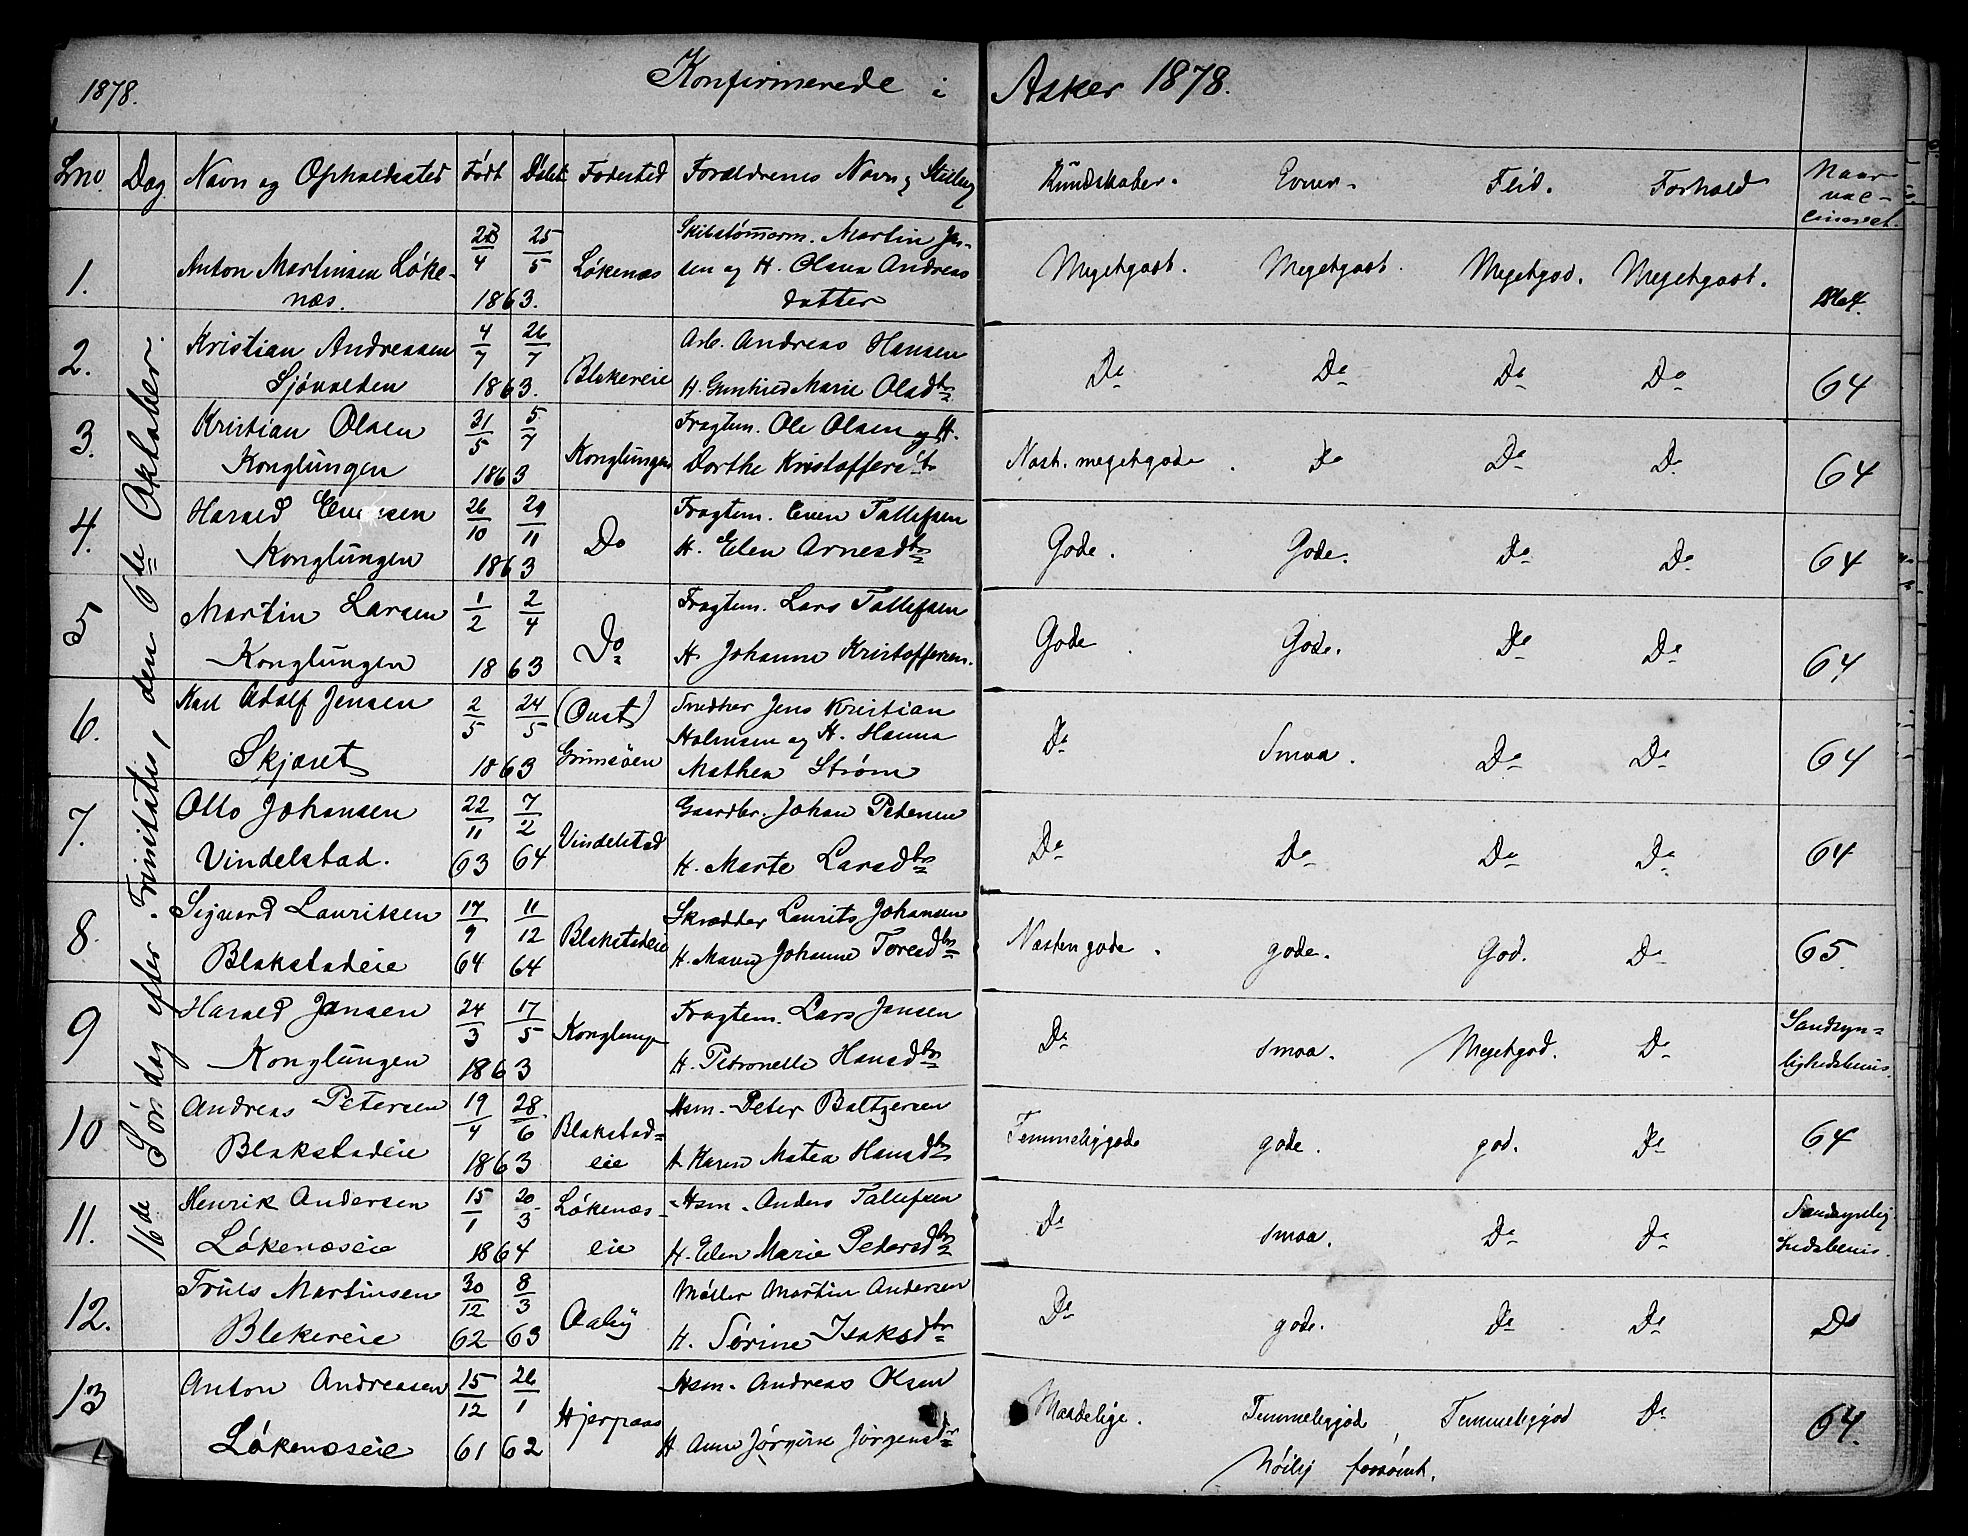 1878. Konfirmerede i Asker 1878.
Lno. Dag Navn og Opholdssted Født Døbt Fødested Forældrenes Navn og Stilling Kundskaber. Evner. Flid. Forhold Naar vac-cineret.
16de Søndag efter Trinitatis, den 6te Oktober.
1. Anton Martinsen Løke- 4 25/5 Løkenæs Skibstømmerm. Martin Jen-
næs. 1863. sen og H. Olava Andreas
datter
Megetgodt. Megetgodt. Megetgod. Megetgodt.
2. Kristian Andreassen 4/7 26/7 Blekereie Arb. Andreas Hansen
Sjøvolden 1863. H. Gunhild Marie Olsdtr
Do Do Do Do 64
3. Kristian Olsen 31/5 5/7 Konglungen Fragtem. Ole Olsen og H.
Konglungen 1863 Dorthe Kristoffersdt
Næst. megetgode. Do Do Do 64
4. Harald Evensen 26/10 29/11 Do Fragtem. Even Tallefsen
Konglungen 1863 H. Elen Arnesdtr
Gode. Gode. Do Do 64
5 Martin Larsen 1/2 2/4 Do Fragtem. Lars Tallefsen
Konglungen 1863 H. Johanne Kristoffersen.
Gode Gode. Do Do 64
6. Karl Adolf Jensen 2/5 24/5 (Oust) Snedker Jens Kristian
Skjæret 1863 Grimsøen Holmsen og H. Hanna
Mathea Strøm
Do Smaa. Do Do 64
7. Otto Johansen 22/11 7/2 Vindelstad Gaardbr. Johan Petersen
Vindelstad. 63 64 H. Marte Larsdtr
Do Do Do Do 64
8. Sigvard Lauritsen 17/9 11/12 Blakstadeie Skrædder Laurits Johansen
Blakstadeie 64 64 H. Maren Johanne Toresdtr
Næsten gode. gode. God. Do 65.
9 Harald Jansen 24/3 17/5 Konglungen Fragtem. Lars Jansen
Konglungen 1863 H. Petronelle Hansdtr
Do smaa. Megetgod. Do Sandsyn=
lighedsbevis.
10 Andreas Petersen 19/4 28/6 Blakstad= Hsm. Peter Baltzersen
Blakstadeie 1863 eie H. Karen Matea Hansdtr
Temmeliggode gode. god. Do 64
11. Henrik Andersen 15/1 20/3 Løkenæs- Hsm. Anders Tallefsen
Løkenæseie 1864 eie H. Elen Marie Pedersdtr
Do smaa. Do Do Sandsynlig
hedsbevis.
12. Truls Martinsen 30/12 8/3 Aaby Møller Martin Andersen
Blekereie 62 63 H. Sørine Isaksdtr
Do gode. Do Do Do
13 Anton Andreasen 15/12 26/1 Hjerpaas Hsm. Andreas Olsen
Løkenæseie 61 62 H Anne Jørgine Jørgensdtr
Maadelige. Temmeliggod Temmeliggod Do 64.
Nøilig forsømt.